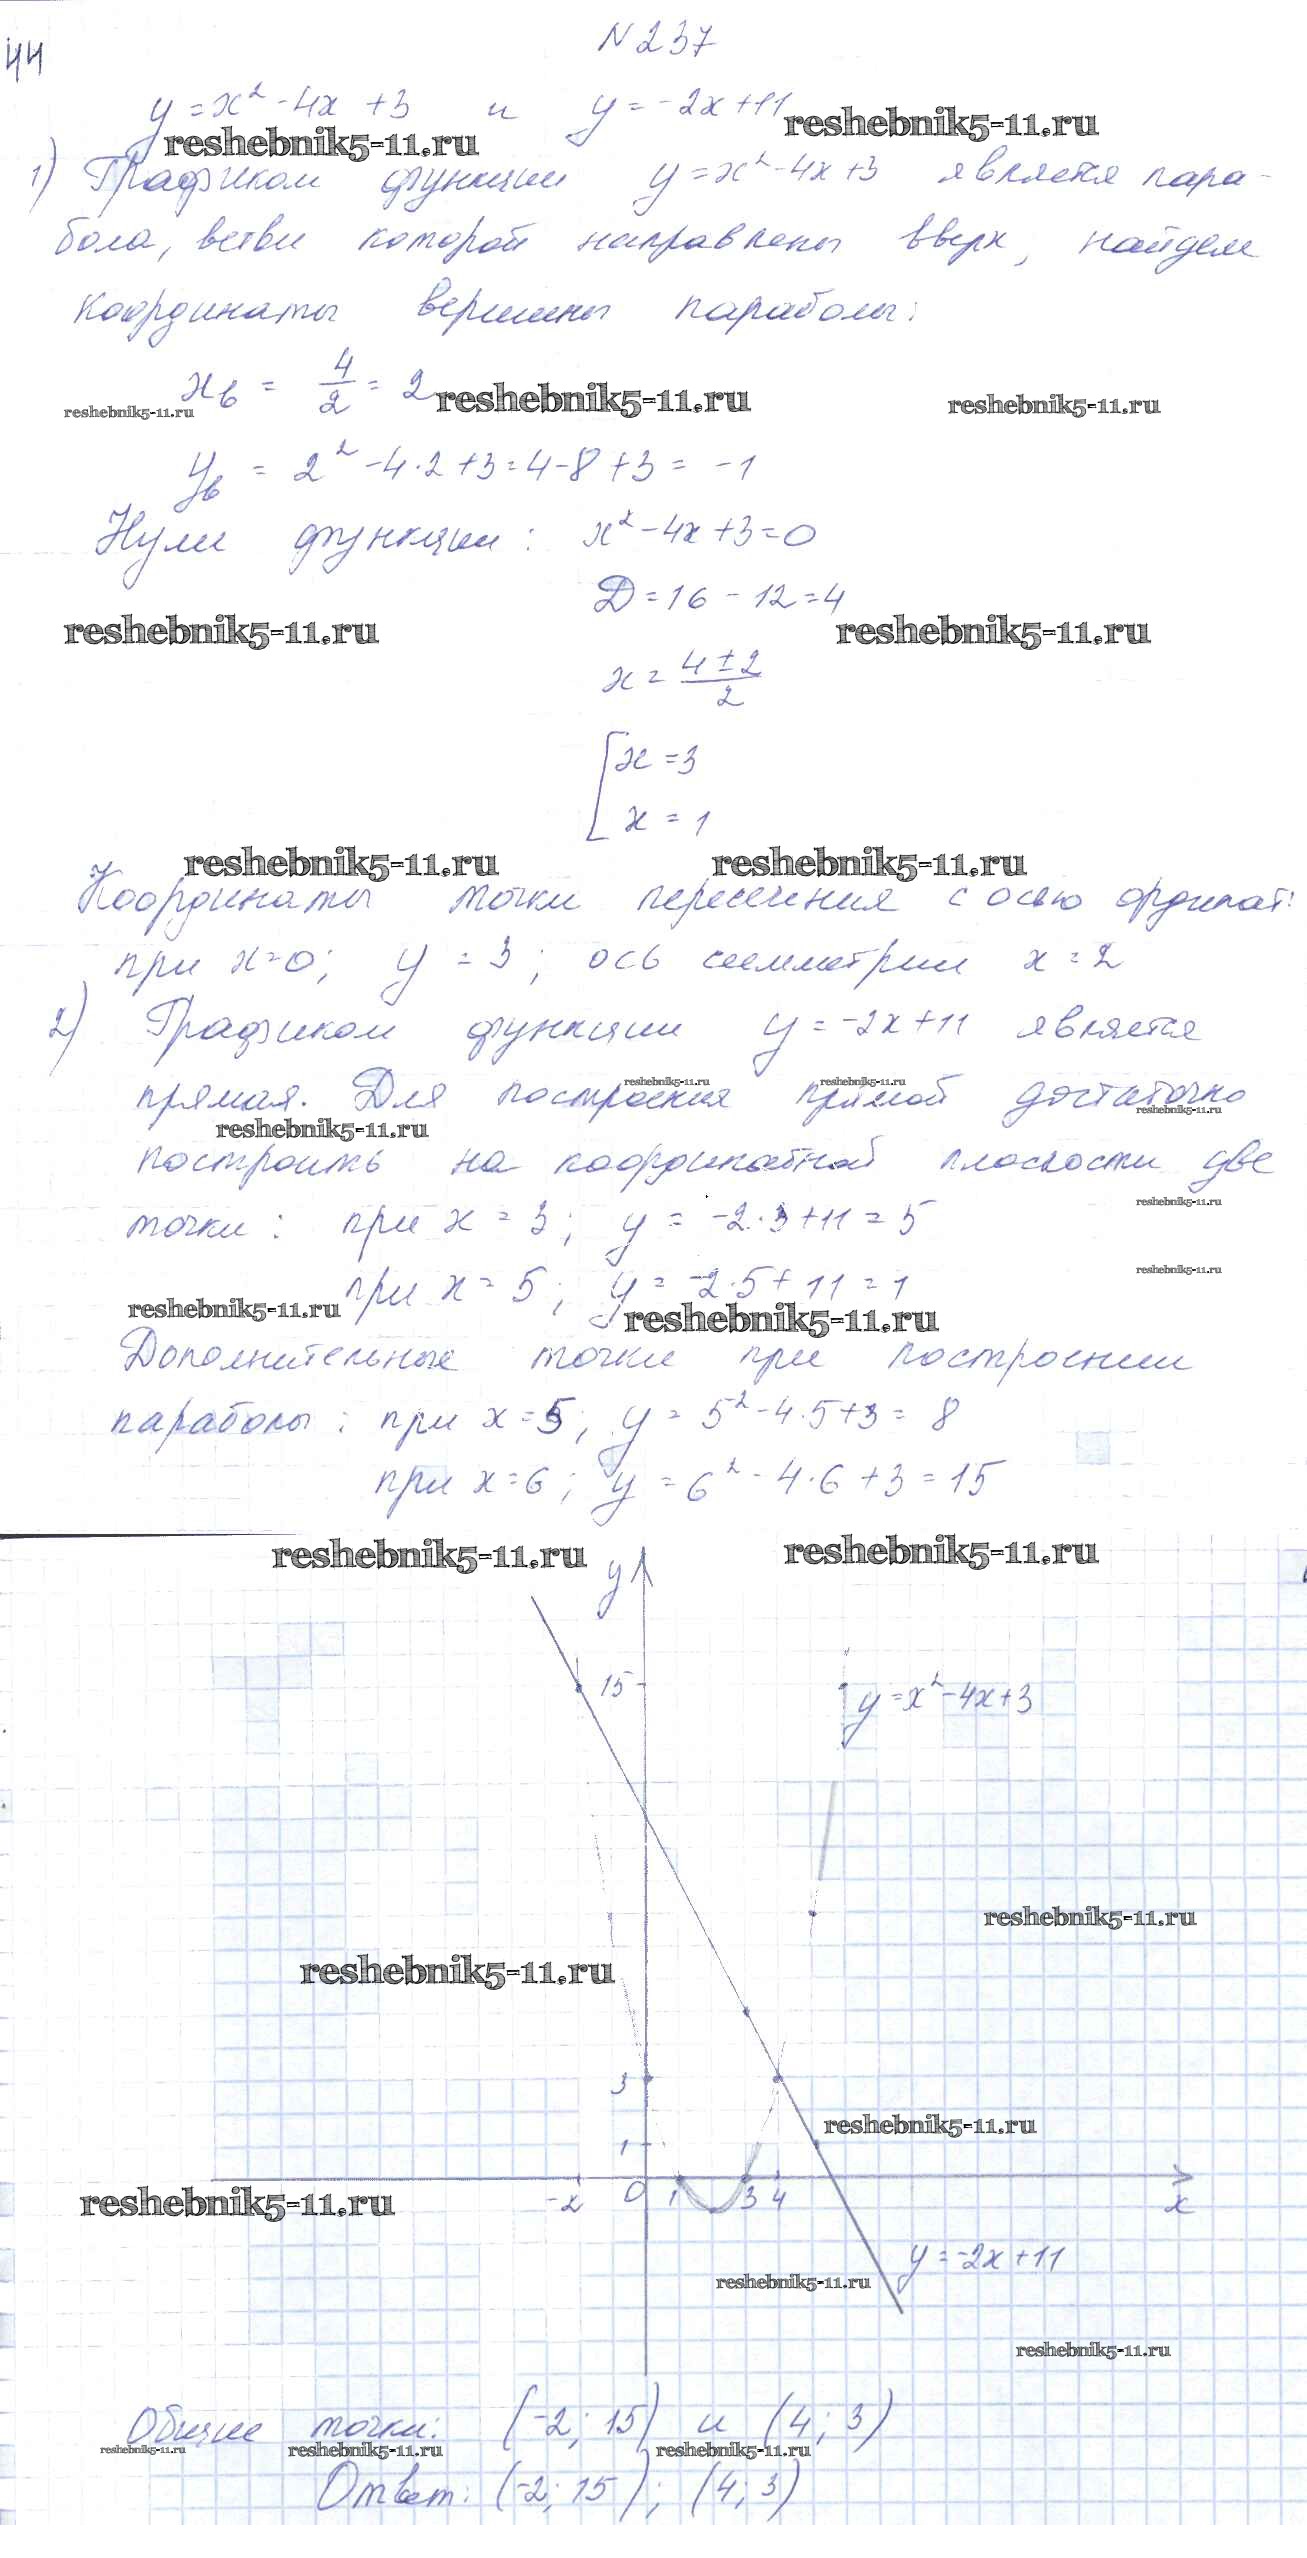 44
N 237
y = x² - 4x + 3 и y = -2x + 11
reshebnik5-11.ru
reshebnik5-11.ru
1) Графиком функции y = x² - 4x + 3 является пара-
бола, ветви которой направлены вверх, найдем
координаты вершины параболы:
xв = 4/2 = 2
reshebnik5-11.ru
reshebnik5-11.ru
reshebnik5-11.ru
yв = 2² - 4·2 + 3 = 4 - 8 + 3 = -1
Нули функции: x² - 4x + 3 = 0
D = 16 - 12 = 4
reshebnik5-11.ru
reshebnik5-11.ru
x = (4 ± 2)/2
[ x = 3
x = 1
reshebnik5-11.ru
reshebnik5-11.ru
Координаты точки пересечения с осью ординат:
при x = 0; y = 3; ось симметрии x = 2
2) Графиком функции y = -2x + 11 является
reshebnik5-11.ru
reshebnik5-11.ru
прямая. Для построения прямой достаточно
reshebnik5-11.ru
reshebnik5-11.ru
построить на координатной плоскости две
reshebnik5-11.ru
точки: при x = 3; y = -2·3 + 11 = 5
reshebnik5-11.ru
при x = 5; y = -2·5 + 11 = 1
reshebnik5-11.ru
reshebnik5-11.ru
Дополнительные точки при построении
параболы: при x = 5; y = 5² - 4·5 + 3 = 8
при x = 6; y = 6² - 4·6 + 3 = 15
reshebnik5-11.ru
reshebnik5-11.ru
y
15
y = x² - 4x + 3
reshebnik5-11.ru
reshebnik5-11.ru
3
reshebnik5-11.ru
1
-2 0 1 3 4 x
reshebnik5-11.ru
y = -2x + 11
reshebnik5-11.ru
reshebnik5-11.ru
Общие точки: (-2; 15) и (4; 3)
reshebnik5-11.ru
reshebnik5-11.ru
reshebnik5-11.ru
Ответ: (-2; 15); (4; 3)